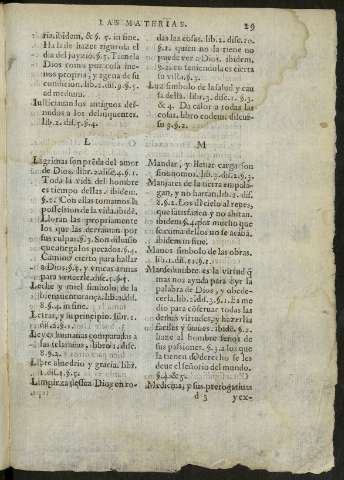 LAS MATERIAS. 29
ria. ibidem, & §. 5. in fine.
Ha la de hazer rigurosa el
dia del juyzio. §. 5. Tienela
Dios como por cosa me-
nos propria, y agena de su
condicion. lib. 2. dis. 9. §. 5.
ad medium.
Iusticiauan los antiguos des-
nudos a los delinquentes.
lib. 2. dis. 5. §. 4.
L
Lagrimas son prēda del amor
de Dios. libr.
Toda la vida del hombre
es tiempo dellas. ibidem.
§. 2. Con ellas tomamos la
possession de la vida. ibidē.
Lloran las propriamente
los que las derraman por
sus culpas. §. 3. Son diluuio
que ahoga los pecados. §. 4.
Camino cierto para hallar
a Dios. §. 5. y vnicas armas
para vencerle.
Leche y miel simbolo de la
bienauenturança. lib. 2. dis.
8. §. 4. in fine.
Letras, y su principio. libr. 1.
dis. 2. §. 1.
Leyes humanas comparadas a
las telarañas, libro 1. disc.
8. §. 2.
Libre aluedrio y gracia. libr.
1. dis. 1. §. 5.
Limpieza dessea Dios en to-
das las cosas. lib. 2. disc. 10.
§. 1. quien no la tiene no
puede ver a Dios. ibidem.
§. 2. en teniendola es cierta
su vista. §. 3.
Luz simbolo de la salud y cau
sa della. libr. 3. disc. 1. §. 3.
& 4. Da calor a todas las
cosas. libro eodem. discur-
so 3. §. 2.
M
Mandar, y lleuar carga son
sinonomos. lib. 3. dis. 2. §. 3.
Manjares de la tierra empala-
gan, y no hartan. lib. 2. dis.
8. §. 2. Los del cielo al reues,
que satisfazen y no ahitan.
ibidem. §. 4. por mucho que
se coma dellos no se acabā.
ibidem in fine.
Manos simbolo de las obras.
lib. 1. dis. 11. §. 1.
Mansedumbre es la virtud q̄
mas nos ayuda para oyr la
palabra de Dios, y obede-
cerla. lib. 2. dis. 3. §. 1. Es me
dio para cōseruar todas las
demas virtudes, y hazerlas
faciles y suaues. ibidē. §. 2.
haze al hombre señor de
sus passiones. §. 3. a los que
la tienen de derecho se les
deue el señorio del mundo.
§. 4. & 5.
Medicina, y sus prerogatiuas
d 3 y ex-